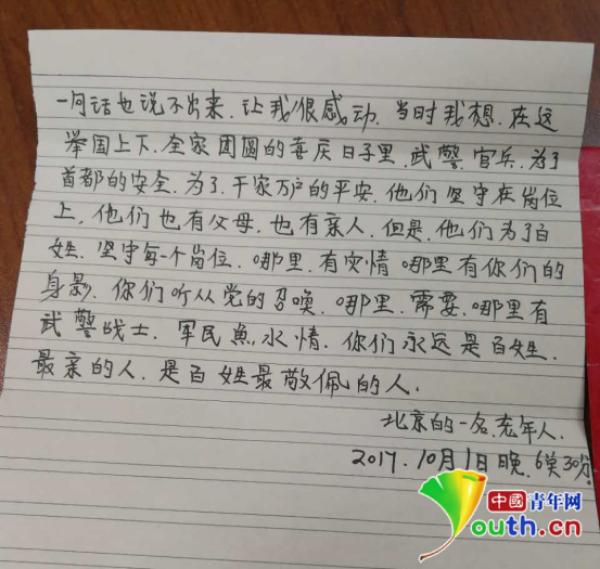 一句话也说不出来.让我很感动.当时我想.在这
举国上下.全家团圆的喜庆日子里.武警官兵.为了
首都的安全.为了.千家万户的平安.他们坚守在岗位
上.他们也有父母.也有亲人.但是.他们为了百
姓.坚守每一个岗位.哪里.有灾情哪里有你们的
身影.你们听从党的召唤.哪里.需要.哪里有
武警战士.军民鱼水情.你们永远是百姓.
最亲的人.是百姓最敬佩的人.
北京的一名.老年人.
2017.10月1日晚.6点30分.
中國青年网
Youth.cn